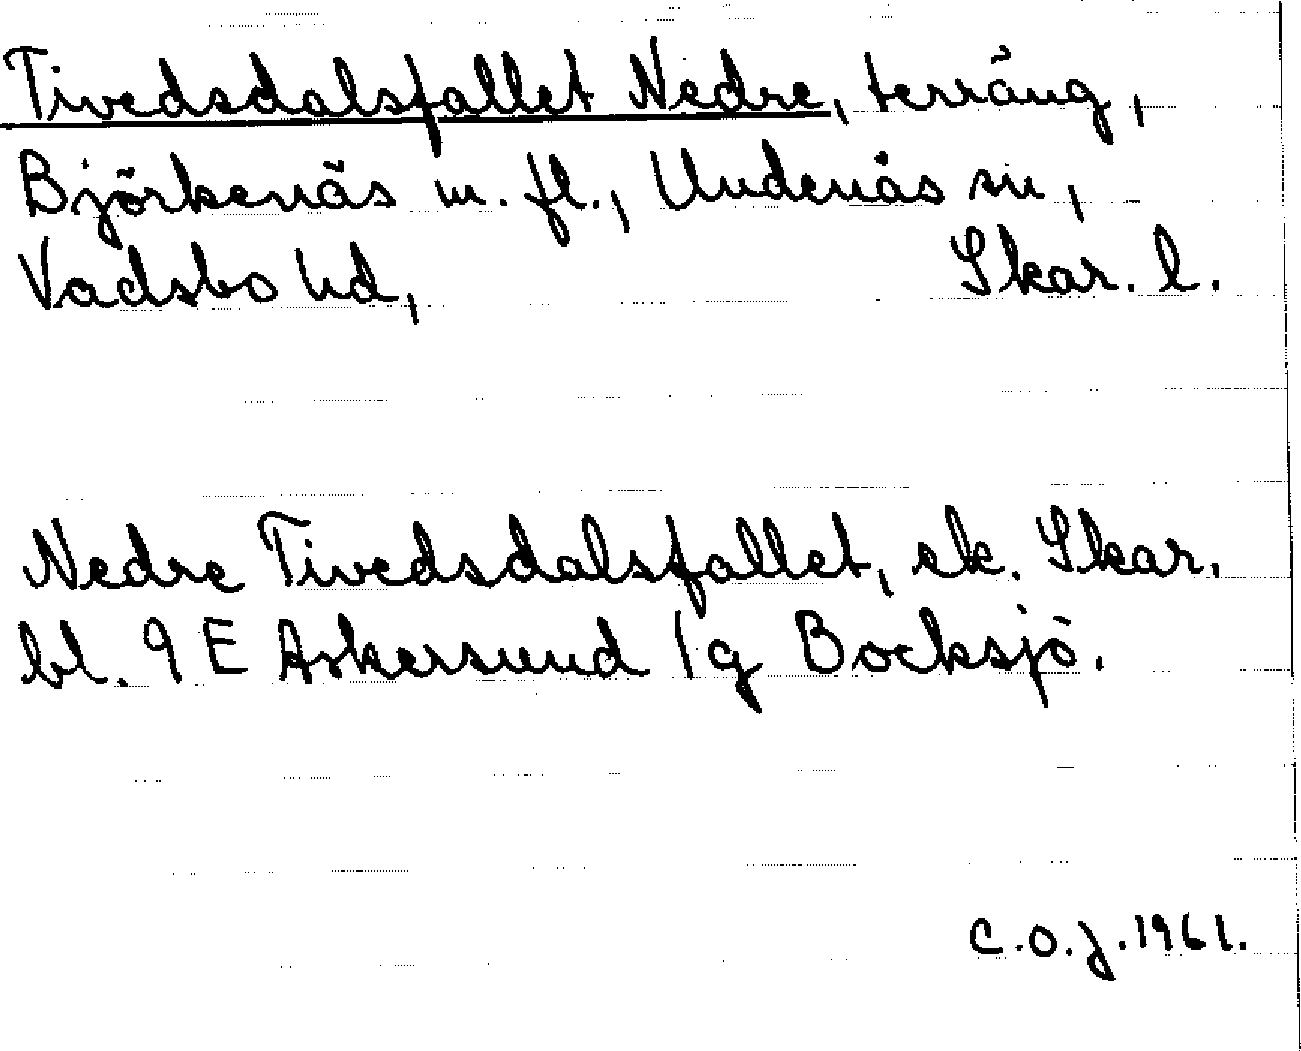 Tivedsdalsfallet Nedre, terräng,
Björkenäs m. fl., Undenäs sn,
Vadsbo hd, Skar. l.
Nedre Tivedsdalsfallet, ek. Skar.
bl. 9 E Askersund 1g Bocksjö.
C.O.J. 1961.